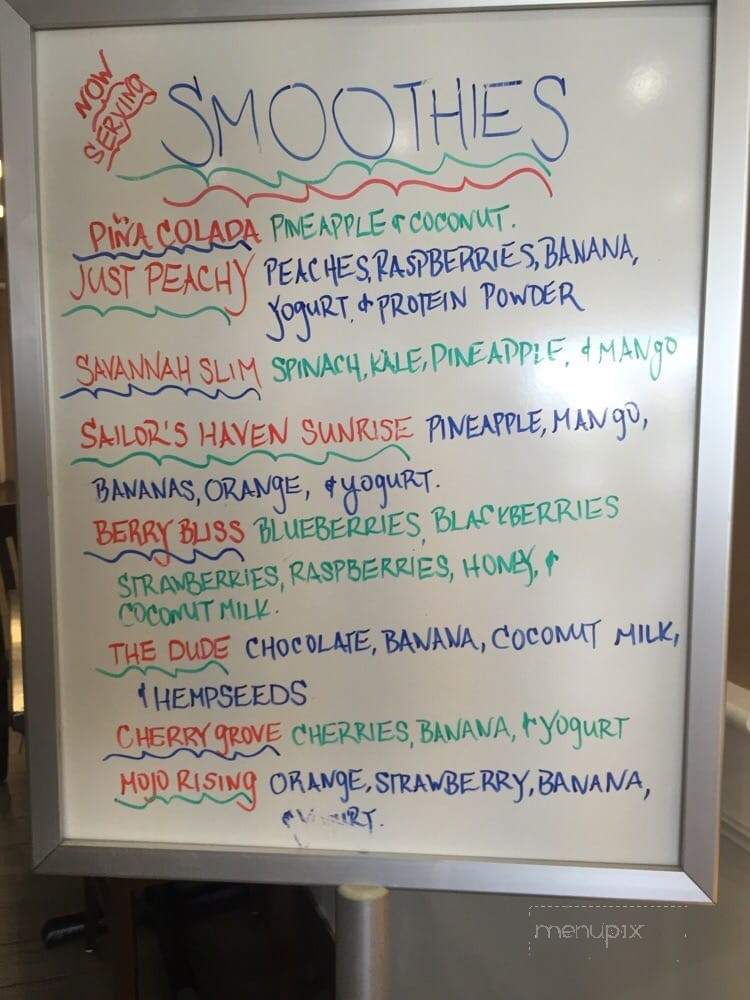 NOW
SERVING
SMOOTHIES
PIÑA COLADA PINEAPPLE & COCONUT.
JUST PEACHY PEACHES, RASPBERRIES, BANANA,
YOGURT, & PROTEIN POWDER
SAVANNAH SLIM SPINACH, KALE, PINEAPPLE, & MANGO
SAILOR'S HAVEN SUNRISE PINEAPPLE, MANGO,
BANANAS, ORANGE, & YOGURT.
BERRY BLISS BLUEBERRIES, BLACKBERRIES
STRAWBERRIES, RASPBERRIES, HONEY, &
COCONUT MILK.
THE DUDE CHOCOLATE, BANANA, COCONUT MILK,
& HEMPSEEDS
CHERRY GROVE CHERRIES, BANANA, & YOGURT
MOJO RISING ORANGE, STRAWBERRY, BANANA,
& YOGURT.
menupix